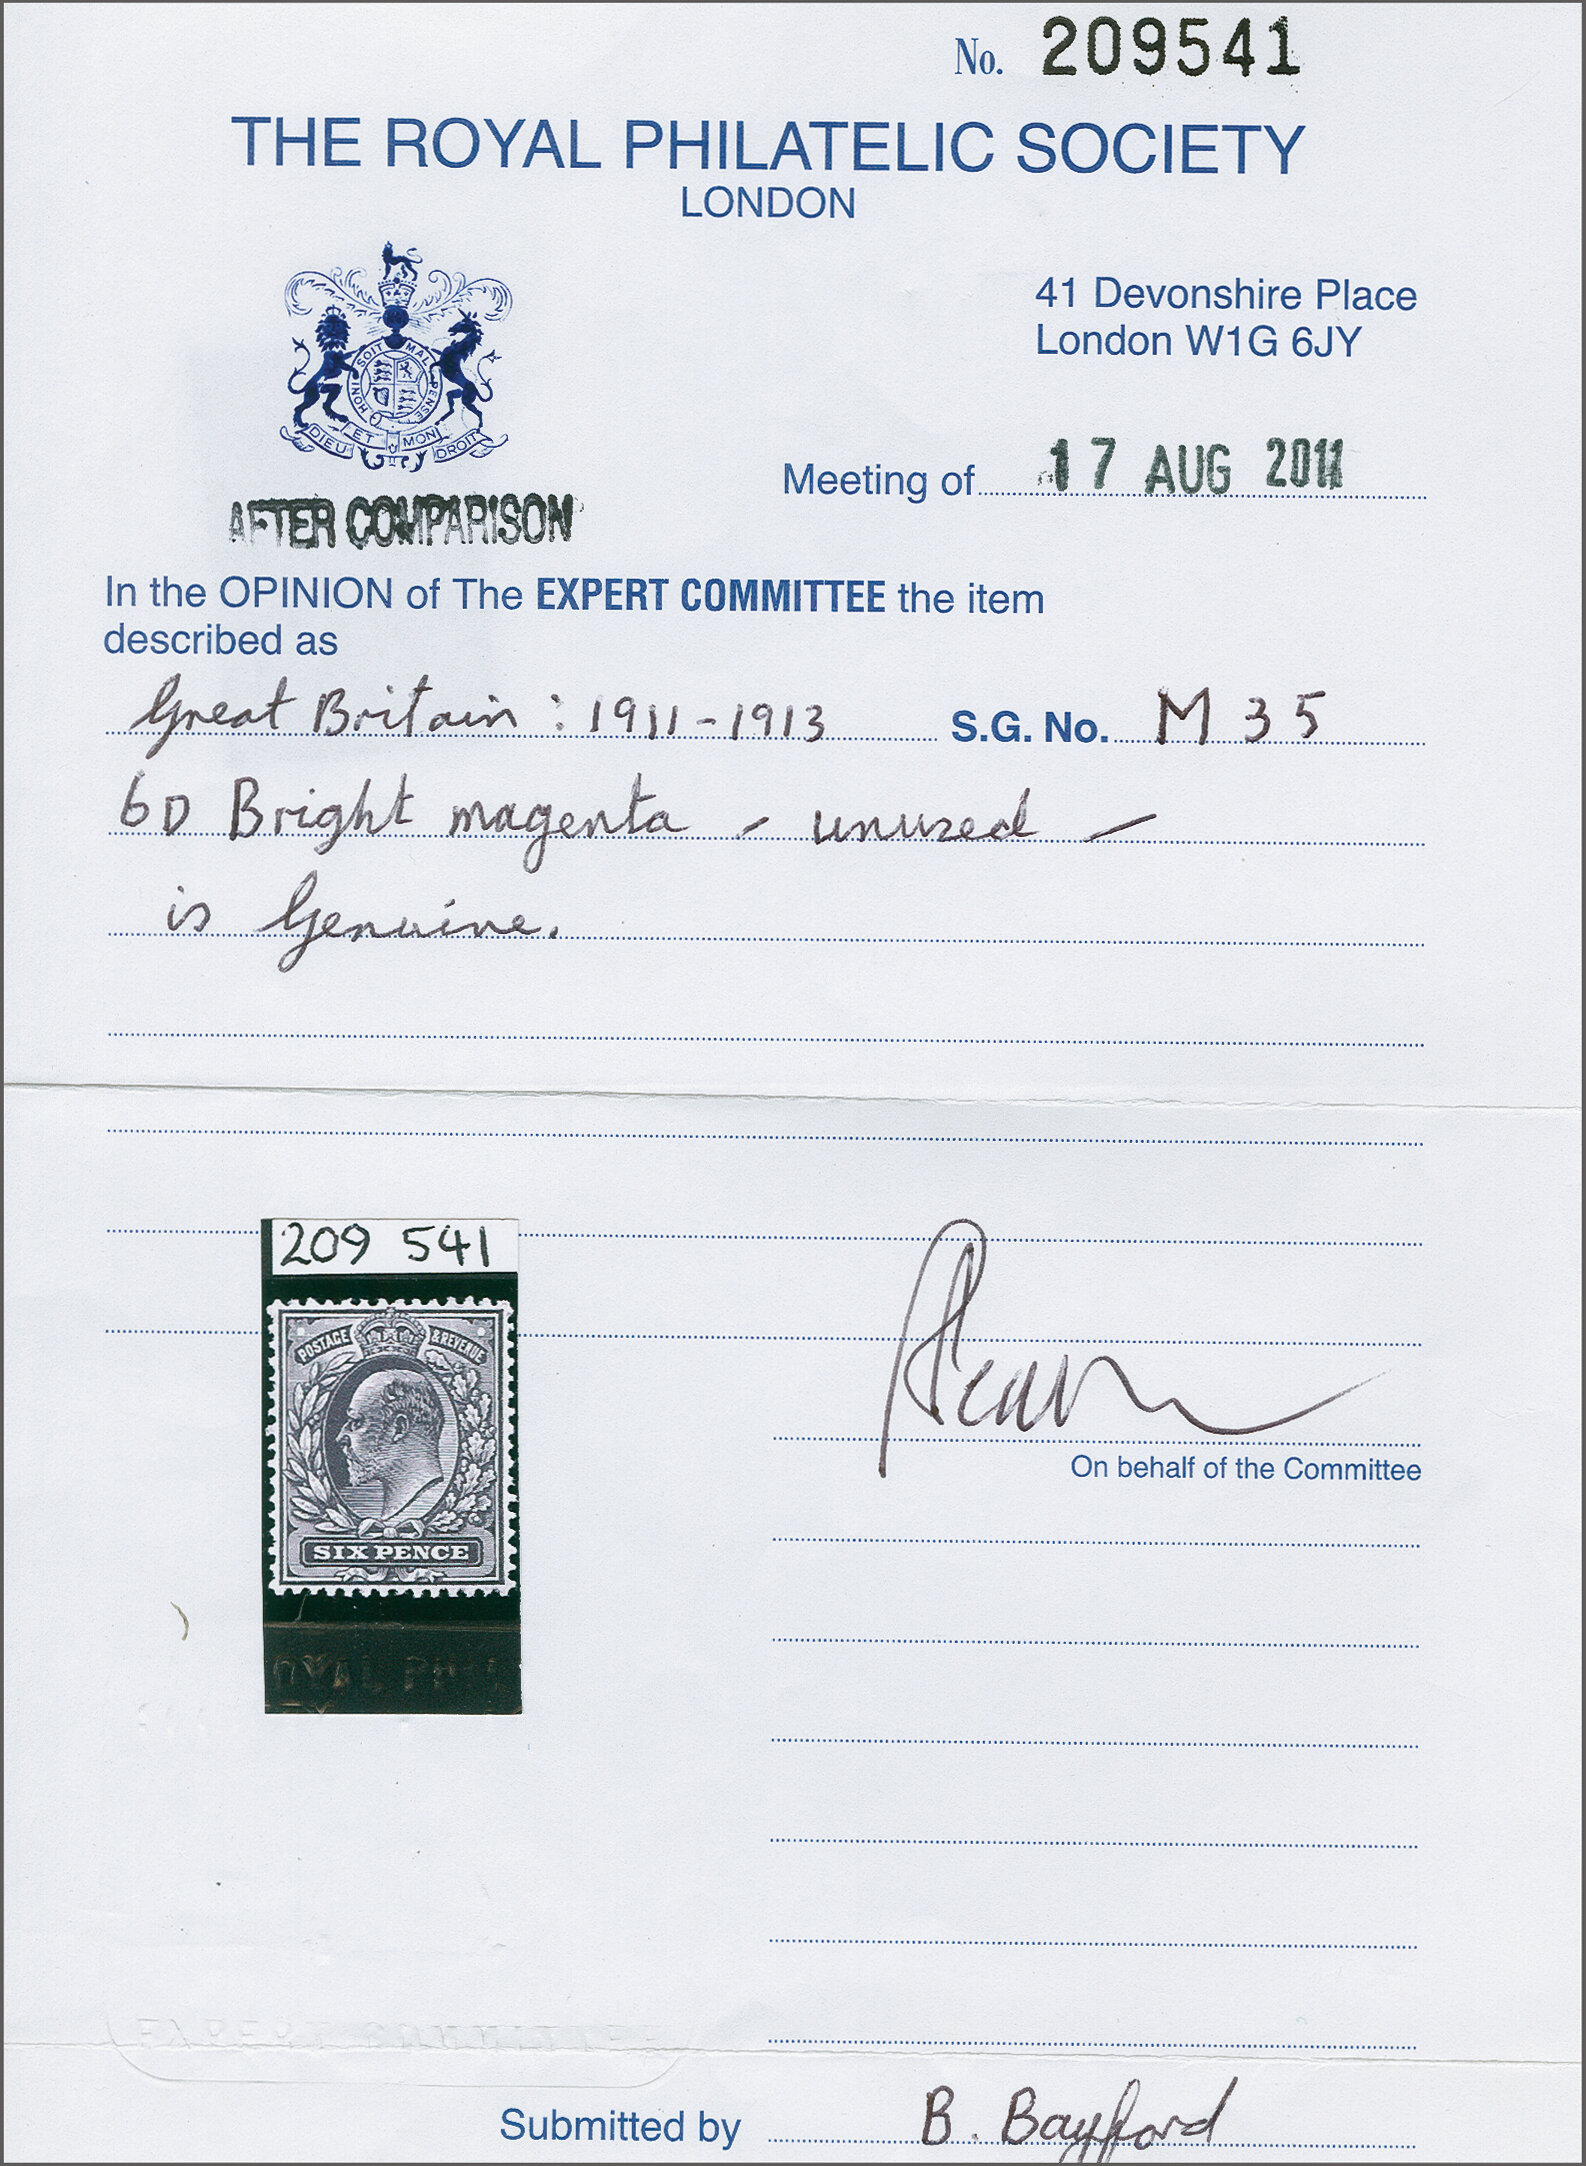 No. 209541
THE ROYAL PHILATELIC SOCIETY
LONDON
41 Devonshire Place
London W1G 6JY
HONI SOIT MAL PENSE
DIEU ET MON DROIT
Meeting of 17 AUG 2011
AFTER COMPARISON
In the OPINION of The EXPERT COMMITTEE the item
described as
Great Britain : 1911-1913 S.G. No. M 35
6D Bright magenta - unused -
is Genuine.
209 541
POSTAGE & REVENUE
SIX PENCE
On behalf of the Committee
EXPERT COMMITTEE
Submitted by B. Bayfford